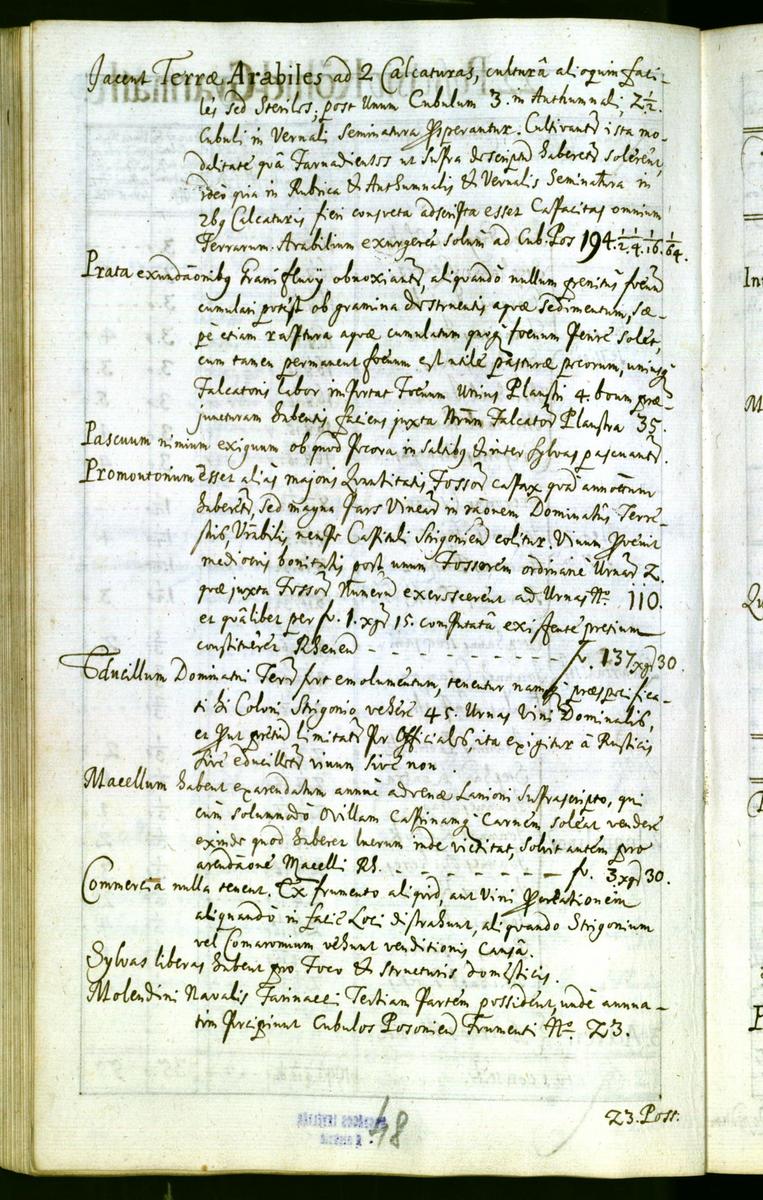 Jacent Terræ Arabiles ad 2 Calcaturas, culturâ alioquin faci-
les sed steriles, post Unum Cubulum 3. in Authumnali, 2½.
Cubuli in Vernali Seminatura Prosperantur. Cultivantr ista mo-
dalitate quâ Farnadienses ut supra descriptu haberetr solerent,
ideo quia in Rubrica & Authumnalis & Vernalis Seminatura in
2bg Calcaturis fieri consveta adscripta esset Capacitas omnium
Terrarum Arabilium exurgeret solum ad Cub. Pos 194. ½. ¼. 1/16. 1/64.
Prata exundaonibg Grani fluvy obnoxiantr, aliquando nullum penitus foenu
cumulari potest ob gramina destruentis aquæ sedimentum, sæ-
pe etiam raptura aquæ cumulatum quoq foenum perire solet,
cum tamen permanet foenum est utile pasturæ pecorum, uniusq
Falcatoris labor importat Foenum Unius Plaustri 4. boum præ-
juncturam habentis, faciens juxta Nrum Falcator Plaustra 35.
Pascuum nimium exiguum ob quod Pecora in salibg & inter sylvas pascuantr.
Promontorium esset alias majoris Quantitatis Fossor capax quod annotatum
haberetr, sed magna Pars Vinear in raonem Dominatus Terre-
stris, Vrabilis, nempe Capituli Strigonien colitur. Vinum Provenit
mediocris bonitatis post unum Fossorem ordinarie Urnar 2.
quæ juxta Fossor Numeru excrescerent ad Urnas No. 110.
et quâlibet per fr. 1. xgr 15. computata existente pretium
constitueret Rhenen - - - - - - - - - fr. 137 xgr 30.
Educillum Dominatui Terr fert emolumentum, tenentur namq præspecifica-
ti hi Coloni Strigonio vehere 45. Urnas Vini Dominalis,
et Prout pretiu limitatr Pr Officiales, ita exigitur à Rusticis
sive educilletr vinum sive non.
Macellum habent exarendatum annuè advenæ Lanioni suprascripto, qui
cum solummodo Ovillam Caprinamq Carnem soleat vendere
exinde quod haberet lucrum inde vicitat, solvit autem pro
arendaone Macelli Rh. - - - - - - - fr. 3 xgr 30.
Commercia nulla tenent. Ex frumento aliquid, aut Vini Procreationem
aliquando in facie Loci distrahunt, aliquando Strigonium
vel Comaromium vehunt venditionis Causâ.
Sylvas liberas habent pro Foco & structuris domesticis.
Molendini Navalis Farinacei Tertiam Partem possident, unde annua-
tim Percipiunt Cubulos Posonien Frumenti No. 23.
23. Post.
48